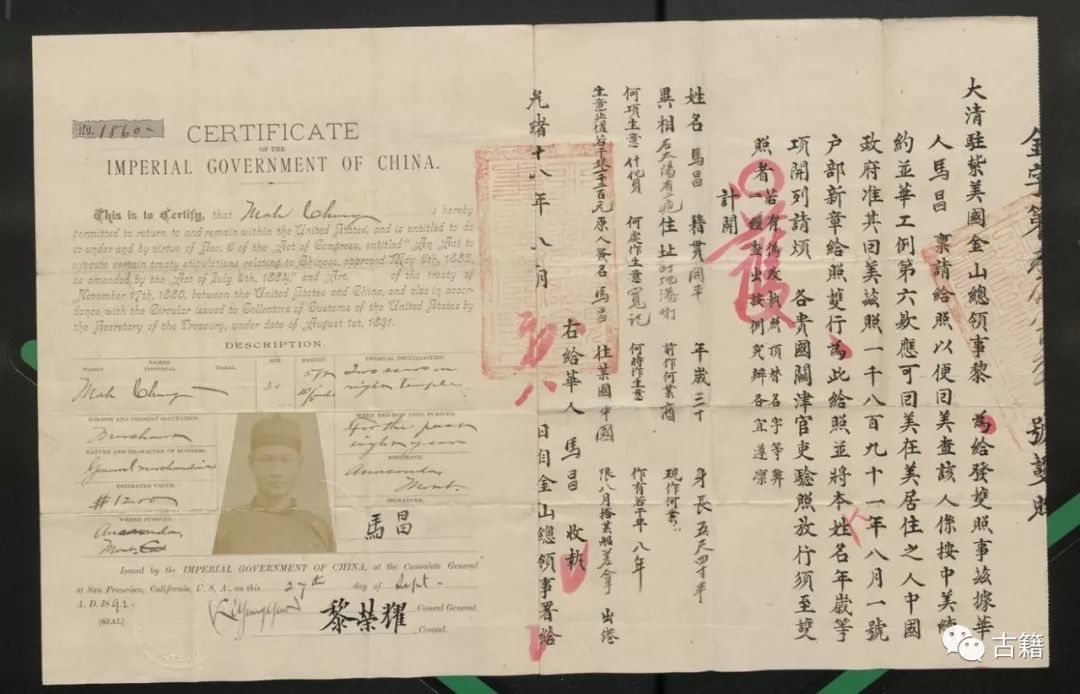 No. 1860-
CERTIFICATE
OF THE
IMPERIAL GOVERNMENT OF CHINA.
This is to Certify, that Mah Chung is hereby
permitted to return to and remain within the United States, and is entitled to do
so under and by virtue of Sec. 6 of the Act of Congress, entitled "An Act to
execute certain treaty stipulations relating to Chinese, approved May 6th, 1882,
as amended by the Act of July 5th, 1884," and Art. of the treaty of
November 17th, 1880, between the United States and China, and also in accor-
dance with the Circular issued to Collectors of Customs of the United States by
the Secretary of the Treasury, under date of August 1st, 1891.
DESCRIPTION.
NAMES.
FAMILY INDIVIDUAL TRIBAL
AGE
HEIGHT
PHYSICAL PECULIARITIES
Mah Chung
Two scars on
right temple
FORMER AND PRESENT OCCUPATION.
Merchant
NATURE AND CHARACTER OF BUSINESS.
General merchandise
ESTIMATED VALUE.
$1200
WHERE PURSUED.
Anaconda,
Mont.
WHEN AND HOW LONG PURSUED.
for the past
eight years
RESIDENCE.
Anaconda
Mont.
SIGNATURE.
馬昌
Issued by the IMPERIAL GOVERNMENT OF CHINA, at the Consulate General
at San Francisco, California, U. S. A., on this 27th day of Sept-
A. D. 1892-
[SEAL]
黎榮耀
Consul General.
Consul.
號雙照
大清駐紮美國金山總領事黎 為給發雙照事茲據華
人馬昌 稟請給照以便回美查該人係按中美續
約並華工例第六款應可回美在美居住之人中國
政府准其回美茲照一千八百九十一年八月一號
户部新章給照雙行為此給照並將本姓名年歲等
項開列請煩 各貴國關津官吏驗照放行須至雙
照者 若有偽改執照頂替名字等弊
一經查出按例究辦各宜遵凛
計開
姓名 馬昌 籍貫 開平 年歲 三十 身長 五尺四寸半
異相 右太陽有二疤 住址 前作何業 商 現作何業
何項生意 什貨 何處作生意 何時作生意 作有若干年 八年
生意值若干 原人簽名 馬昌 往某國 中國 出港
右給華人 馬昌 收執
光緒十八年八月 日 自金山總領事署給
古籍